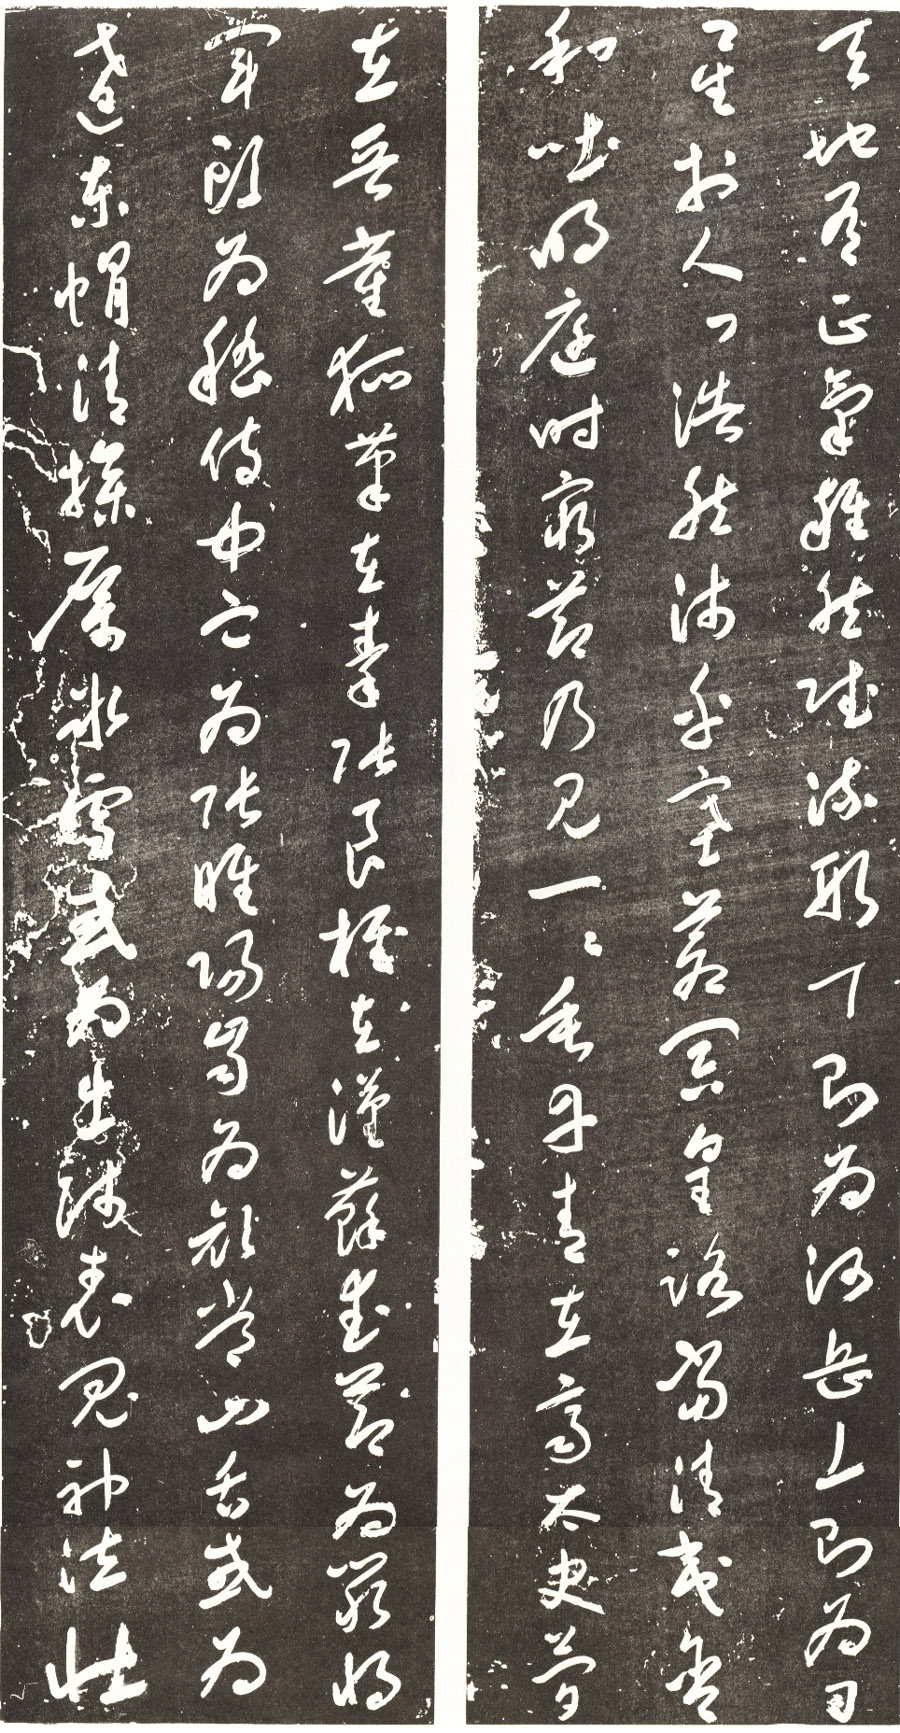 天地有正氣雜然賦流形下則為河岳上則為日
星於人曰浩然沛乎塞蒼冥皇路當清夷含
和吐明庭時窮節乃見一々垂丹青在齊太史簡
在晉董狐筆在秦張良椎在漢蘇武節為嚴將
軍頭為嵇侍中血為張睢陽齒為顏常山舌或為
遼東帽清操厲冰雪或為出師表鬼神泣壯